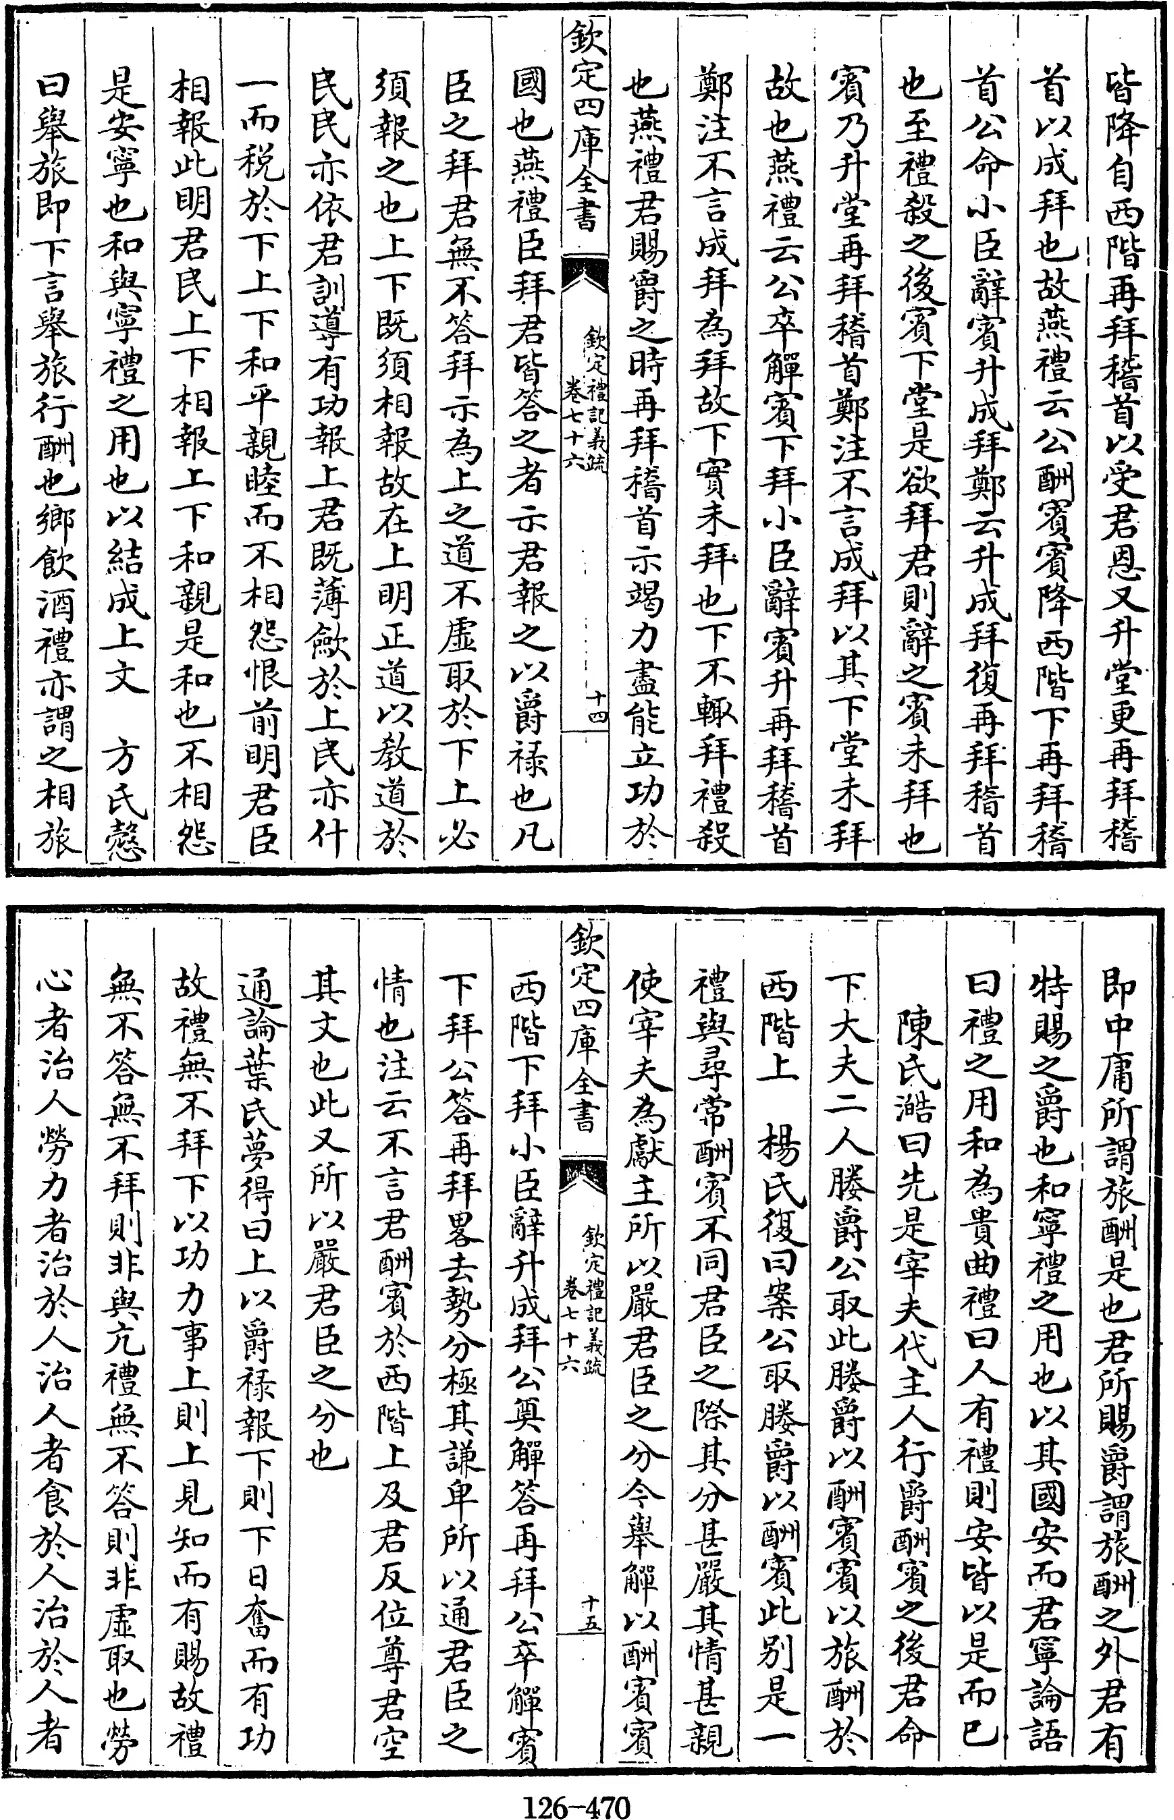 皆降自西階再拜稽首以受君恩又升堂更再拜稽
首以成拜也故燕禮云公酬賓賓降西階下再拜稽
首公命小臣辭賓升成拜鄭云升成拜復再拜稽首
也至禮殺之後賓下堂是欲拜君則辭之賓未拜也
賓乃升堂再拜稽首鄭注不言成拜以其下堂未拜
故也燕禮云公卒觶賓下拜小臣辭賓升再拜稽首
鄭注不言成拜為拜故下實未拜也下不輙拜禮殺
也燕禮君賜爵之時再拜稽首示竭力盡能立功於
欽定四庫全書
欽定禮記義疏
卷七十六
十四
國也燕禮臣拜君皆答之者示君報之以爵禄也凡
臣之拜君無不答拜示為上之道不虛取於下上必
須報之也上下既須相報故在上明正道以教道於
民民亦依君訓導有功報上君既薄斂於上民亦什
一而税於下上下和平親睦而不相怨恨前明君臣
相報此明君民上下相報上下和親是和也不相怨
是安寧也和與寧禮之用也以結成上文　方氏慤
曰舉旅即下言舉旅行酬也鄉飲酒禮亦謂之相旅
即中庸所謂旅酬是也君所賜爵謂旅酬之外君有
特賜之爵也和寧禮之用也以其國安而君寧論語
曰禮之用和為貴曲禮曰人有禮則安皆以是而已
陳氏澔曰先是宰夫代主人行爵酬賓之後君命
下大夫二人媵爵公取此媵爵以酬賓賓以旅酬於
西階上　楊氏復曰案公取媵爵以酬賓此别是一
禮與尋常酬賓不同君臣之際其分甚嚴其情甚親
使宰夫為獻主所以嚴君臣之分今舉觶以酬賓賓
欽定四庫全書
欽定禮記義疏
卷七十六
十五
西階下拜小臣辭升成拜公奠觶答再拜公卒觶賓
下拜公答再拜畧去勢分極其謙卑所以通君臣之
情也注云不言君酬賓於西階上及君反位尊君空
其文也此又所以嚴君臣之分也
通論葉氏夢得曰上以爵禄報下則下日奮而有功
故禮無不拜下以功力事上則上見知而有賜故禮
無不答無不拜則非與亢禮無不答則非虛取也勞
心者治人勞力者治於人治人者食於人治於人者
126-470